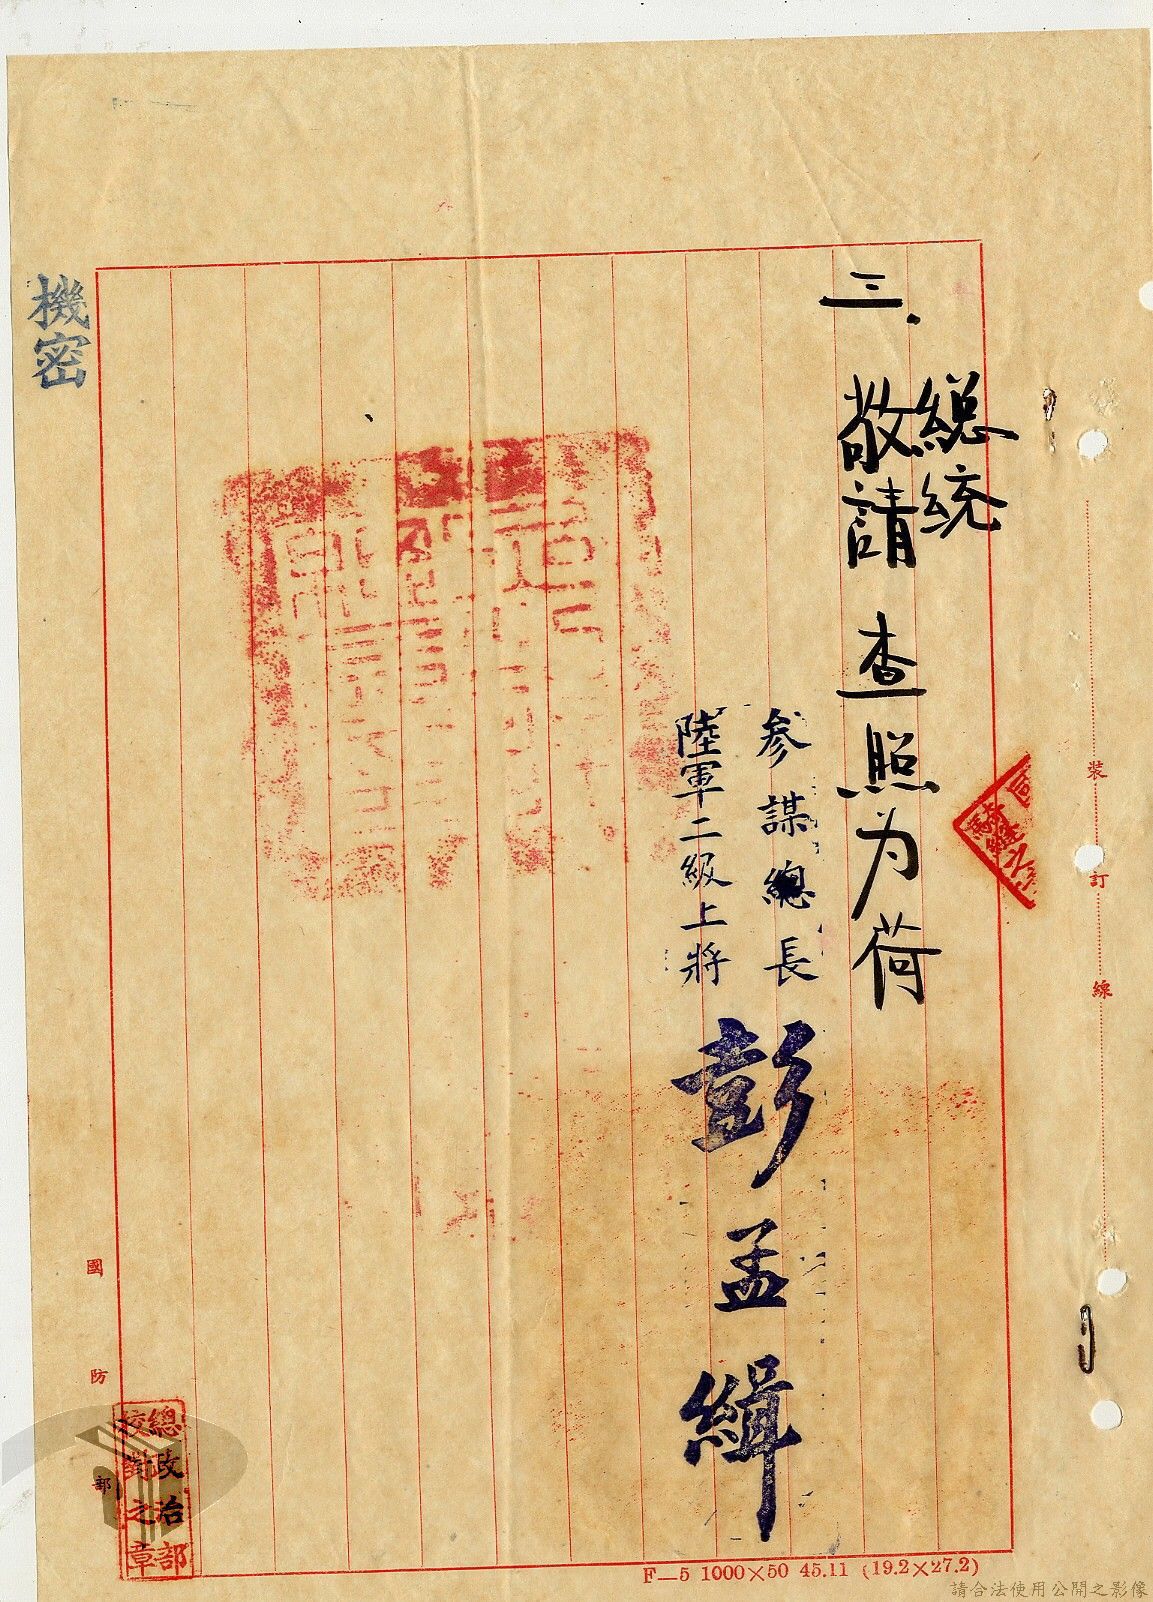 總統
三、敬請 查照为荷
參謀總長
陸軍二級上將
彭孟緝
機密
裝訂線
國防部
總政治部
校對之章
F—5 1000×50 45.11 (19.2×27.2)
請合法使用公開之影像